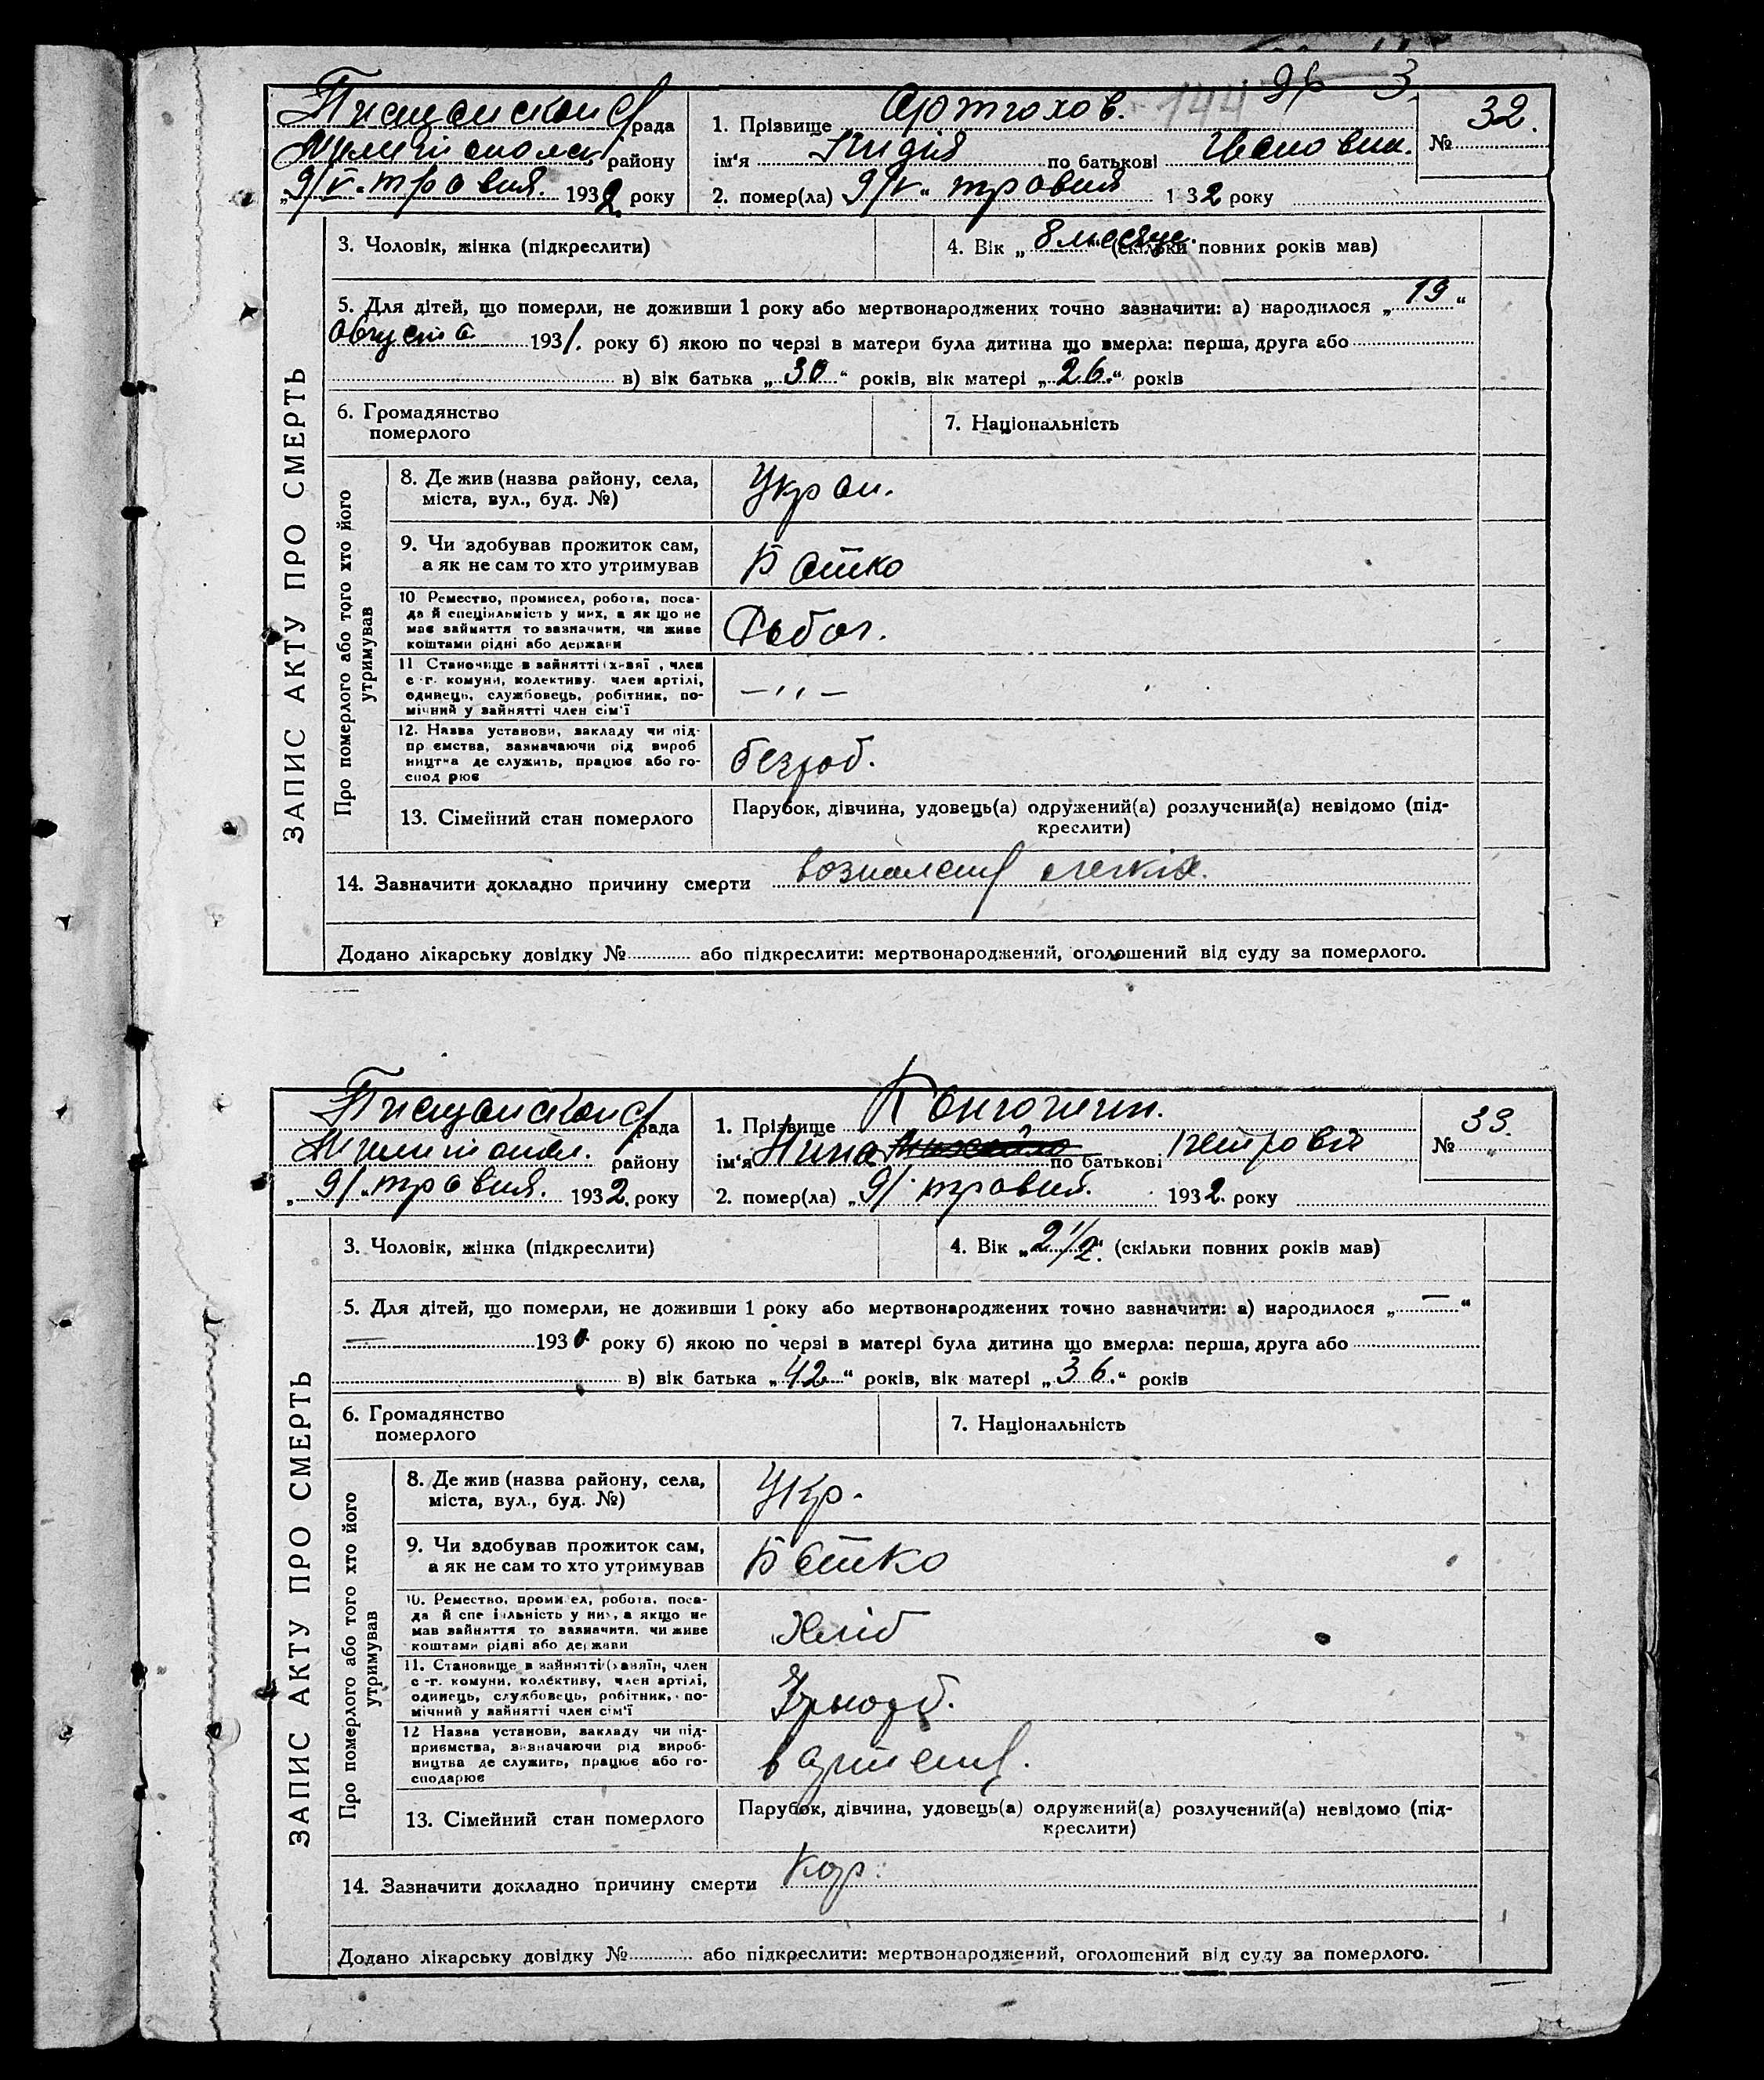 144 96 3.
Пищанской рада
Мелитополск району
„9/V“ травня. 1932 року
1. Прізвище Артюхов.
ім‘я Лидія по батькові Ивановна.
2. помер(ла) 9/V“ травня 1 32 року
№ 32.
3. Чоловік, жінка (підкреслити)
4. Вік „8 месяце.“ (скільки повних років мав)
5. Для дітей, що померли, не доживши 1 року або мертвонароджених точно зазначити: а) народилося „19“
августа 1931. року б) якою по черзі в матери була дитина що вмерла: перша, друга або
в) вік батька „30“ років, вік матері „26.“ років
6. Громадянство
померлого
7. Національність
ЗАПИС АКТУ ПРО СМЕРТЬ
Про померлого або того хто його
утримував
8. Де жив (назва району, села,
міста, вул., буд. №)
Украи.
9. Чи здобував прожиток сам,
а як не сам то хто утримував
Батко
10 Ремество, промисел, робота, поса-
да й спеціяльність у них, а як що не
має зайняття то зазначити, чи живе
коштами рідні або держави
Робоч.
11 Становище в зайнятті , член
с -г. комуни, колективу. член артілі,
одинець, службовець, робітник, по-
мічний у зайнятті член сім'ї
—,,—
12. Назва установи, закладу чи під-
пр ємства, зазначаючи рід вироб
ництва де служить, працює або го-
спод рює
безроб.
13. Сімейний стан померлого
Парубок, дівчина, удовець(а) одружений(а) розлучений(а) невідомо (під-
креслити)
14. Зазначити докладно причину смерти воспалений легких.
Додано лікарську довідку № або підкреслити: мертвонароджений, оголошений від суду за померлого.
Пищанской рада
Мелитопол. району
„9/.“ травня. 1932. року
1. Прізвище
ім‘я Нина по батькові Петровн
2. помер(ла) „9/. травня. 1932. року
№ 33.
3. Чоловік, жінка (підкреслити)
4. Вік „2 1/2.“ (скільки повних років мав)
5. Для дітей, що померли, не доживши 1 року або мертвонароджених точно зазначити: а) народилося „—“
— 1930 року б) якою по черзі в матері була дитина що вмерла: перша, друга або
в) вік батька „42“ років, вік матері „36.“ років
6. Громадянство
померлого
7. Національність
ЗАПИС АКТУ ПРО СМЕРТЬ
Про померлого або того хто його
утримував
8. Де жив (назва району, села,
міста, вул., буд. №)
Укр.
9. Чи здобував прожиток сам,
а як не сам то хто утримував
Батко
10. Ремество, промисел, робота, поса-
да й спеціяльність у них, а якщо не
мав зайняття то зазначити, чи живе
коштами рідні або держави
Хліб
11. Становище в зайнятті (хазяїн, член
с -г. комуни, колективу, член артілі,
одинець, службовець, робітник, по-
мічний у зайнятті член сім'ї
12 Назва установи, закладу чи під-
приємства, зазначаючи рід вироб-
ництва де служить, працює або го-
сподарює
в артелі.
13. Сімейний стан померлого
Парубок, дівчина, удовець(а) одружений(а) розлучений(а) невідомо (під-
креслити)
14. Зазначити докладно причину смерти Кор.
Додано лікарську довідку № або підкреслити: мертвонароджений, оголошений від суду за померлого.